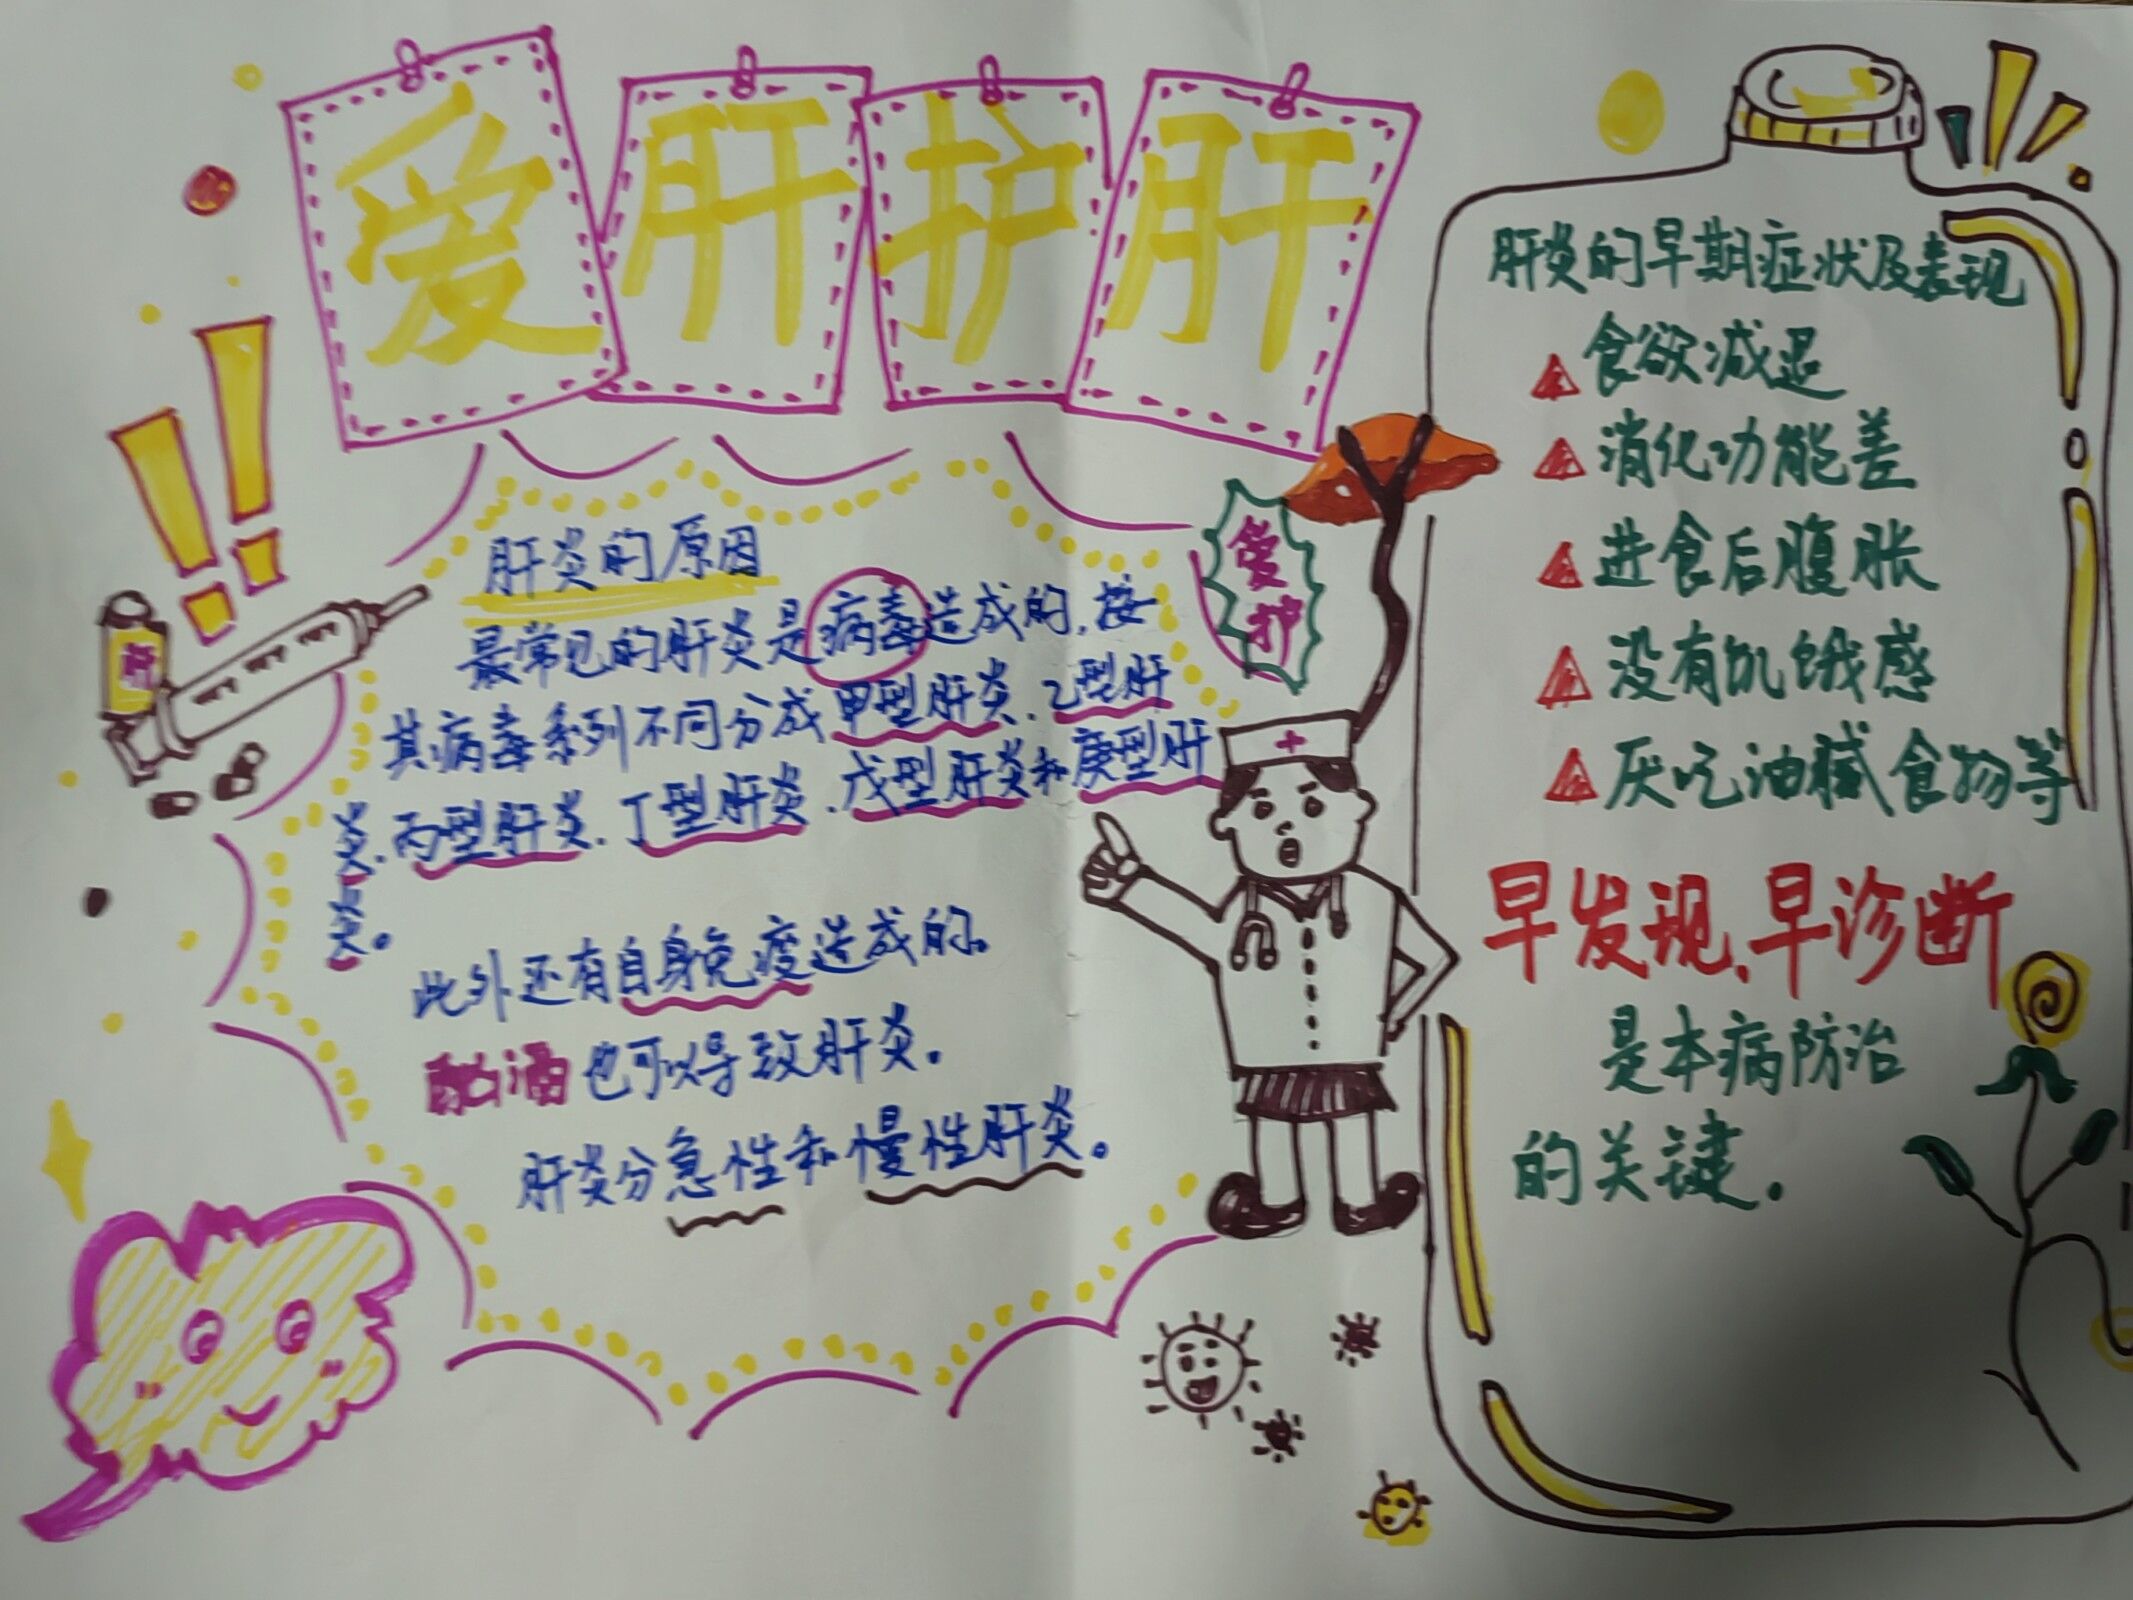 爱肝护肝
肝炎的原因
最常见的肝炎是病毒造成的,按
其病毒系列不同分成甲型肝炎、乙型肝
炎、丙型肝炎、丁型肝炎、戊型肝炎和庚型肝
炎。
此外还有自身免疫造成的。
酗酒也可以导致肝炎。
肝炎分急性和慢性肝炎。
肝
爱
护
肝炎的早期症状及表现
食欲减退
消化功能差
进食后腹胀
没有饥饿感
厌吃油腻食物等
早发现、早诊断
是本病防治
的关键。